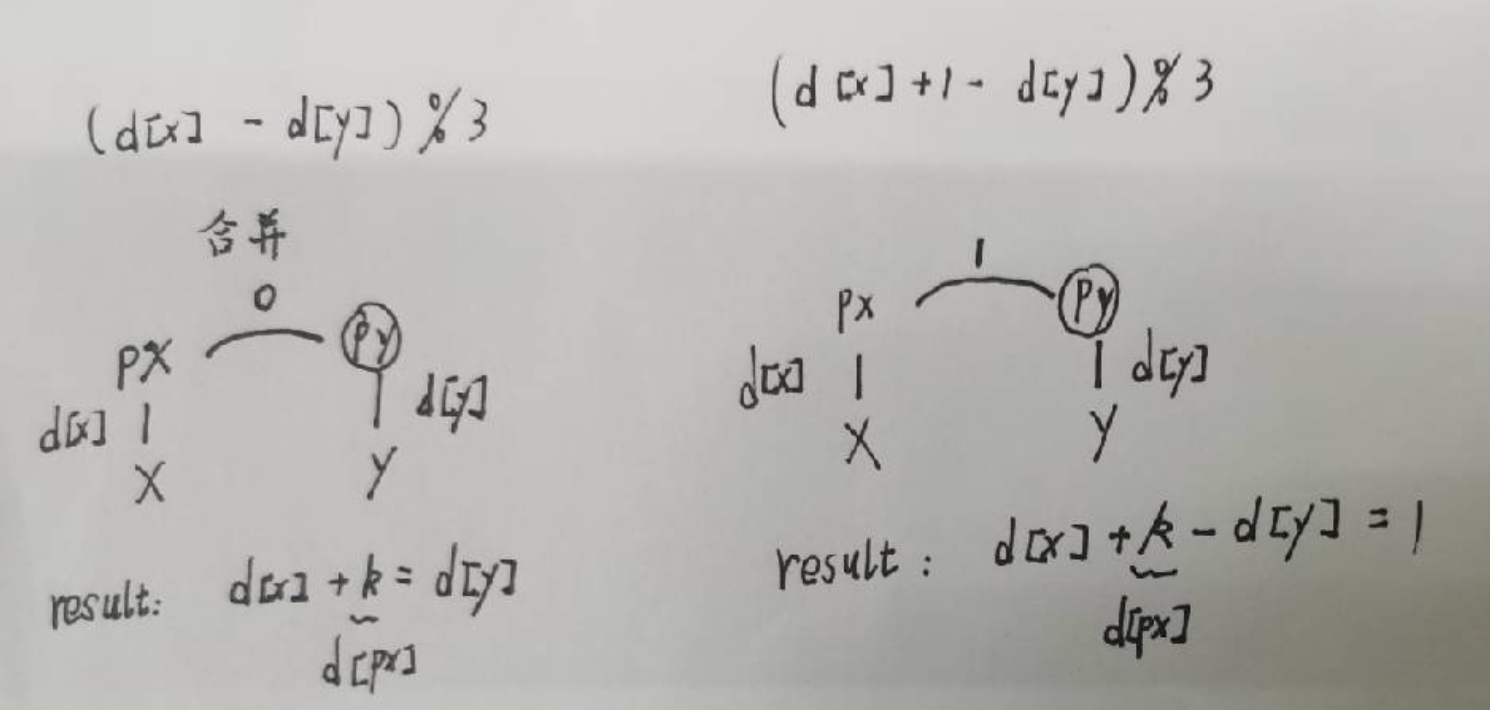 (d[x] - d[y]) % 3
合并
0
px
py
d[x]
d[y]
X
Y
result: d[x] + k = d[y]
d[px]
(d[x] +1- d[y]) % 3
1
px
py
d[x]
d[y]
X
Y
result: d[x] + k - d[y] = 1
d[px]